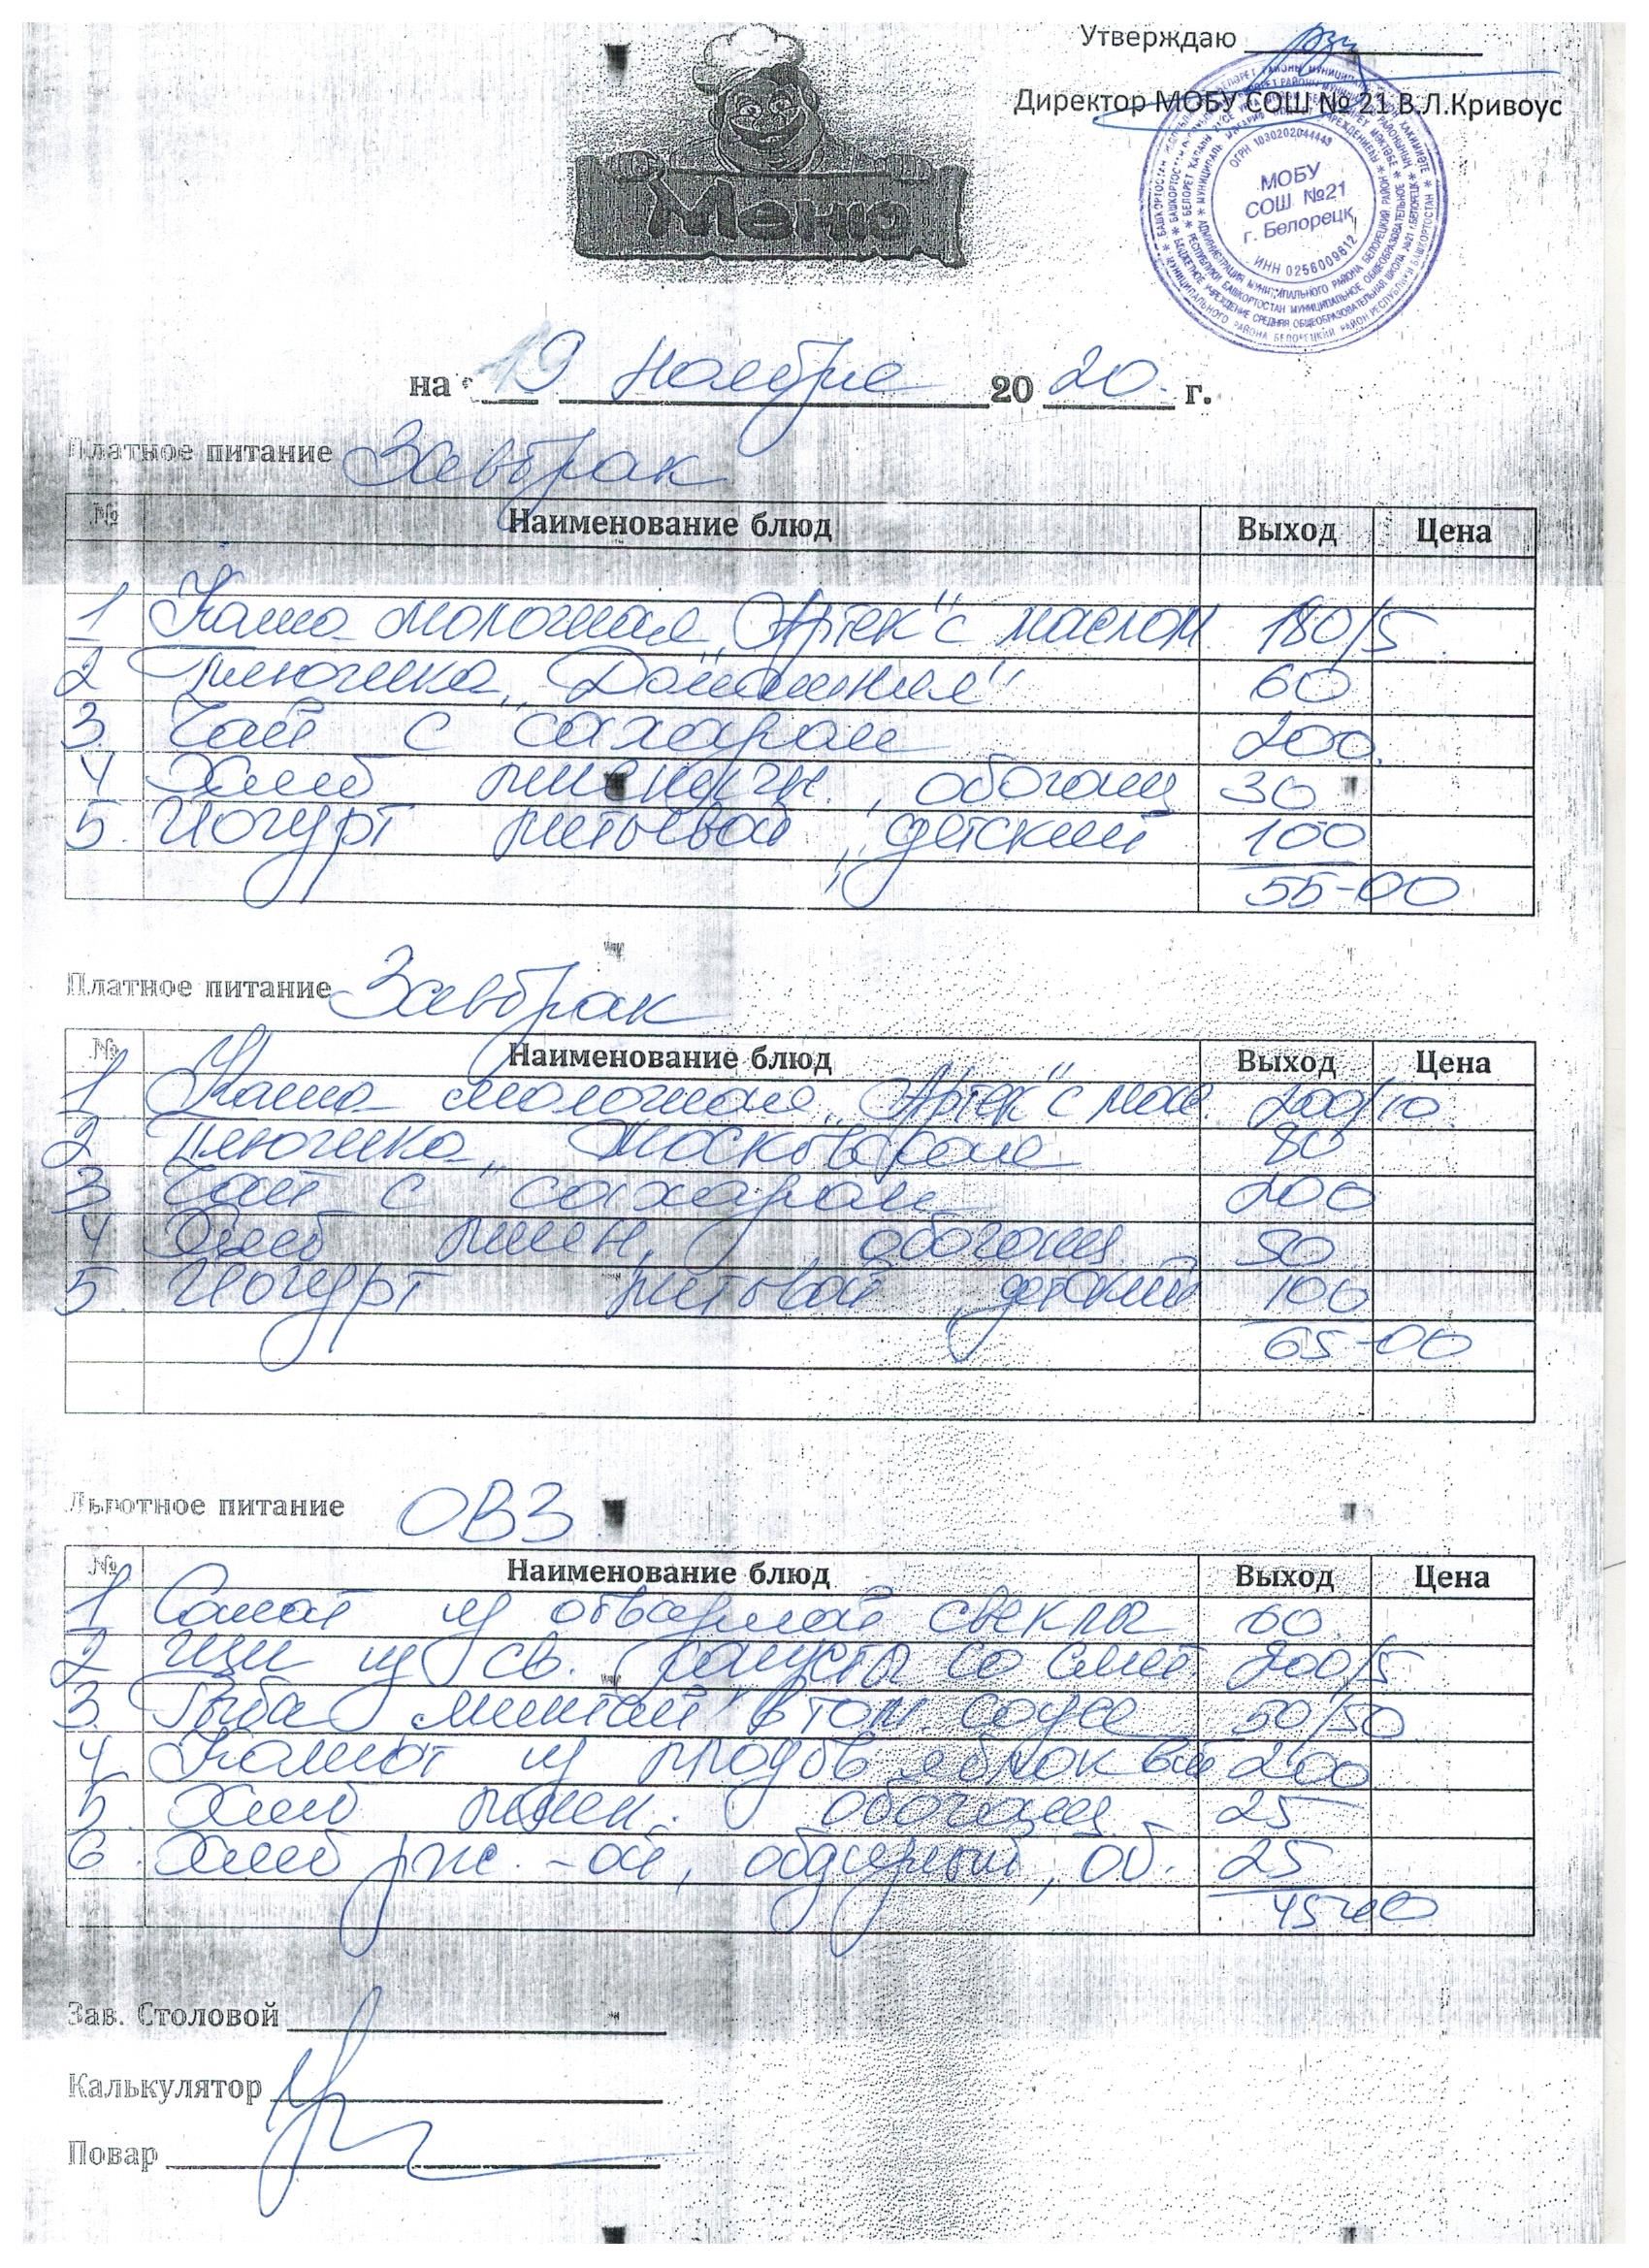 Утверждаю
Директор МОБУ СОШ № 21 В.Л.Кривоус
ОГРН 1030202044443
МОБУ
СОШ №21
г. Белорецк
ИНН 0256009612
Меню
на 19 ноября 20 20 г.
Платное питание Завтрак
№ Наименование блюд Выход Цена
1 Каша молочная „Артек" с маслом 180/5
2 Плюшка „Домашняя" 60
3. Чай с сахаром 200
4 Хлеб пшеничн., обогащ 30
5. Йогурт питьевой, детский 100
55-00
Платное питание Завтрак
№ Наименование блюд Выход Цена
1 Каша молочная „Артек" с мас. 200/10
2 Плюшка „Московская 80
3 Чай с сахаром 200
4 Хлеб пшен, обогащ 50
5. Йогурт питьевой детский 100
65-00
Льготное питание ОВЗ
№ Наименование блюд Выход Цена
1 Салат из отварной свеклы 60
2 Щи из св. капусты со смет. 200/5
3. Рыба минтай в том. соусе 50/50
4 Компот из плодов яблок 200
5. Хлеб пшен. обогащ 25
6. Хлеб рж.-ой, обдирный, об. 25
45-00
Зав. Столовой
Калькулятор
Повар